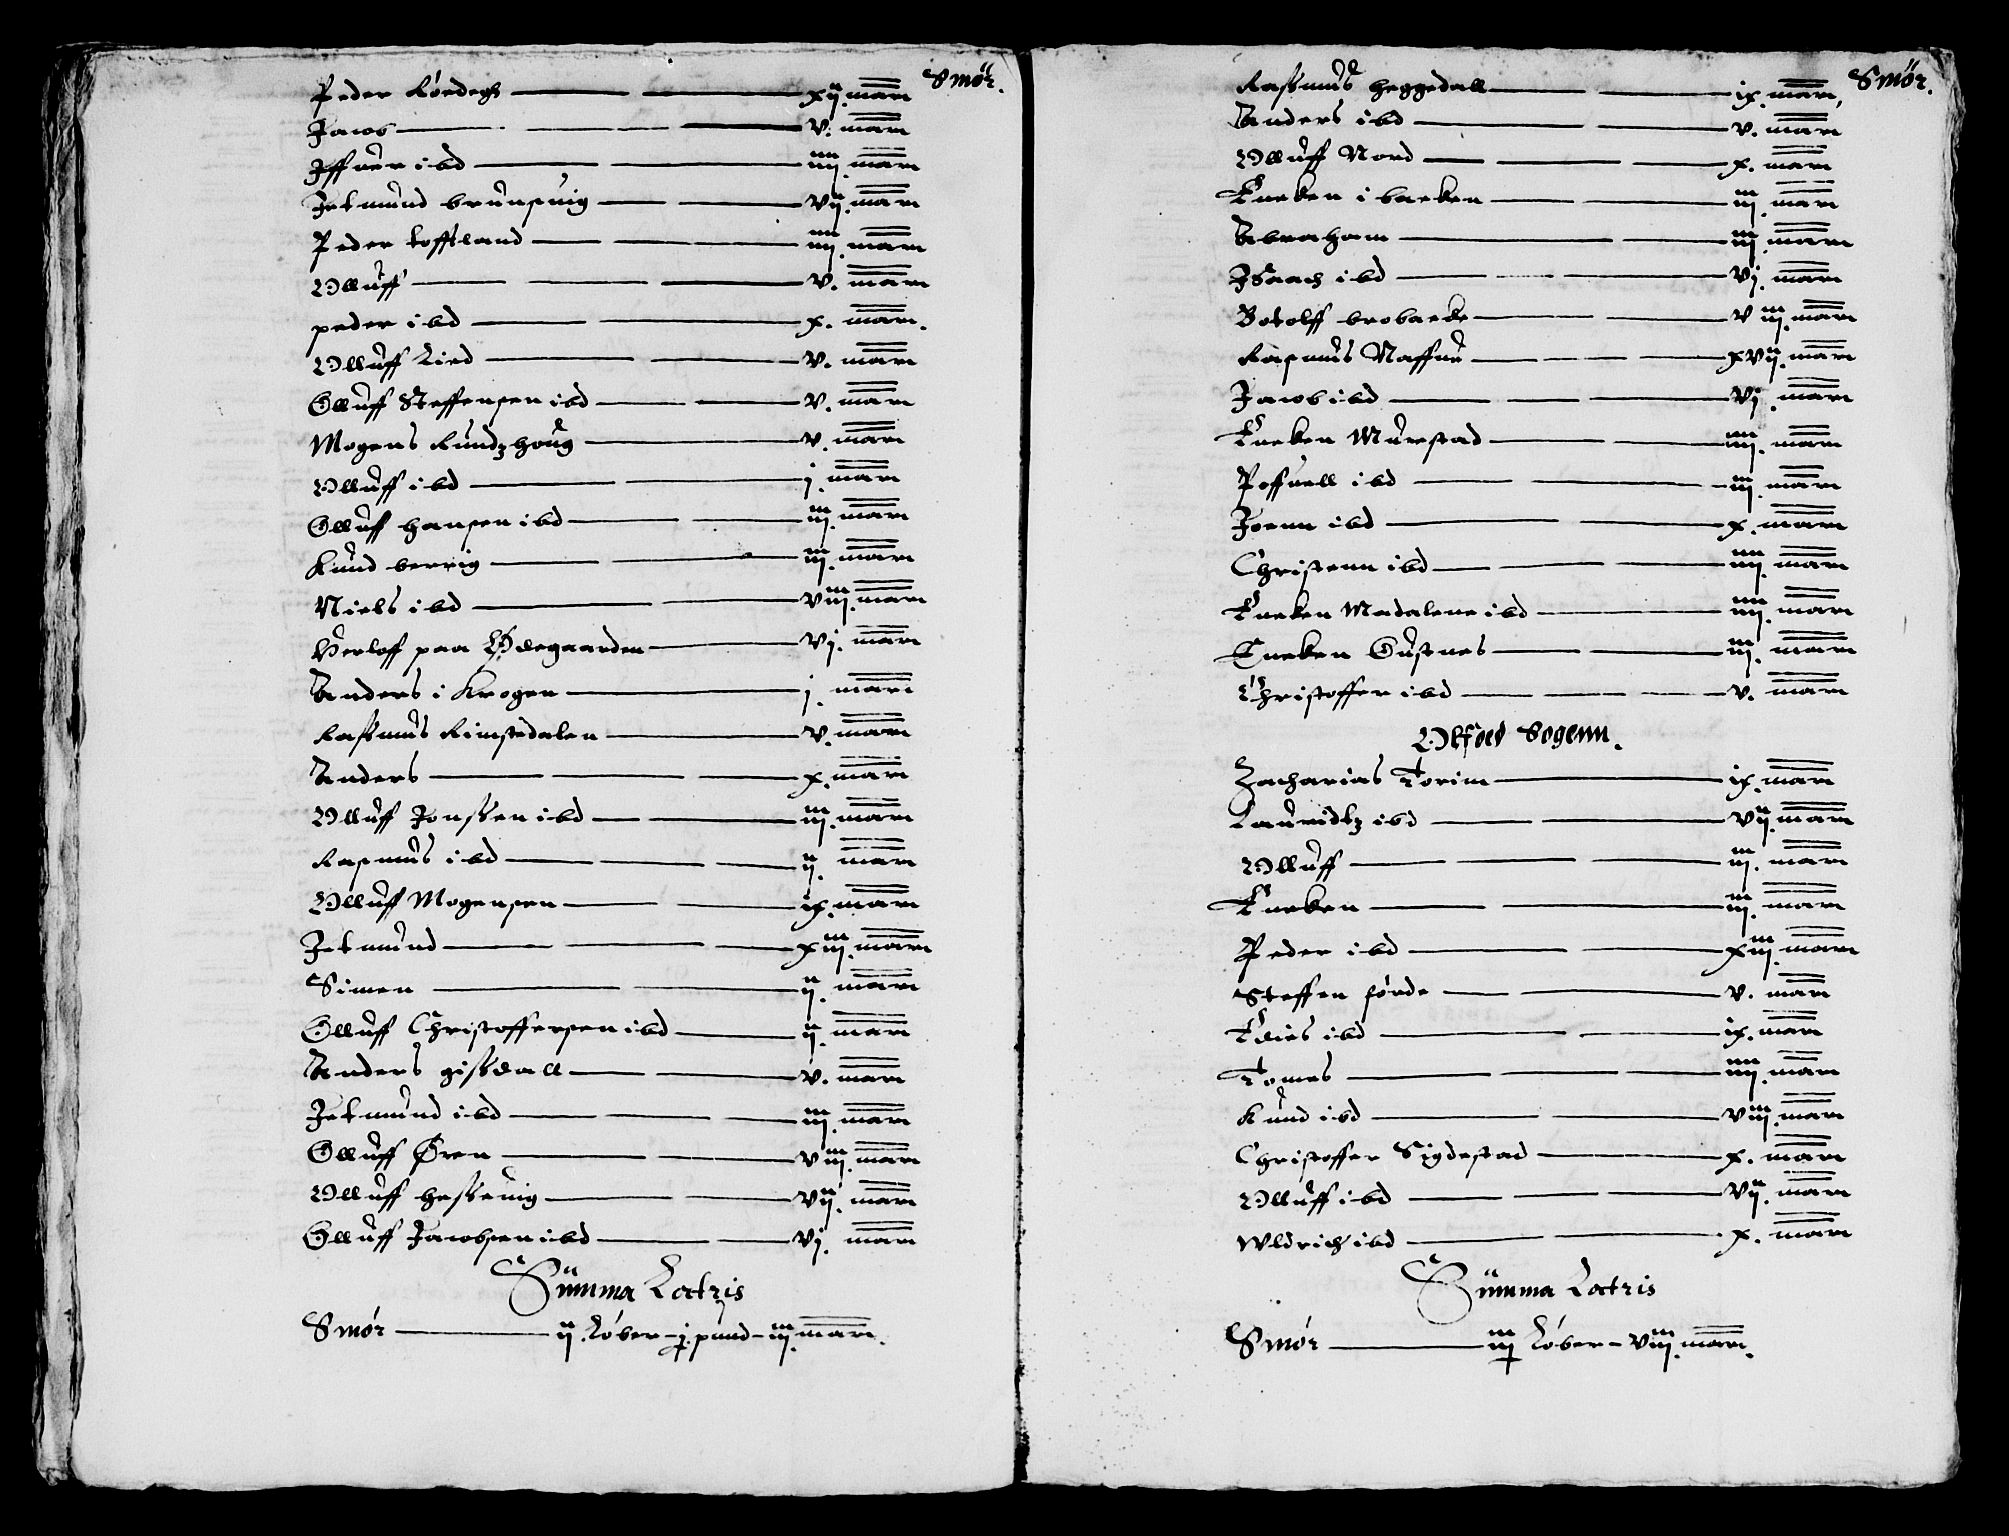 Smör.
Peder Röedegh — xij. mark
Jacob — v. mark
Iffuer ibd — iiij. mark
Jetmund brunsuig — vij. mark
Peder toffsland — iiij. mark
Olluff — v. mark
peder ibd — x. mark.
Olluff Lied — v. mark
Olluff Steffensen ibd — v. mark
Mogens Rundzhoug — v. mark
Olluff ibd — j. mark
Olluff hansen ibd — iij. mark
Knud berrig — iij. mark
Niels ibd — viij. mark
Verloff paa Ødegaarden — vj. mark
Anders i Krogen — j. mark
Rassmus Rimstedalen — v. mark
Anders — x. mark
Olluff Jonssen ibd — iij. mark
Rasmus ibd — ij. mark
Olluff Mogensen — ix. mark
Jetmund — xiij. mark
Simen — ij. mark
Olluff Christoffersen ibd — ij. mark
Anders gissdall — v. mark
Jetmund ibd — iij. mark
Olluff Øren — viij. mark
Olluff hesseuig — vij. mark
Olluff Jacobsen ibd — vj. mark
Summa Latris
Smör — ij. Löber – j. pund – iij. mark.
Smör.
Rassmus heggedall — ix. mark,
Anders ibd — v. mark
Olluff Nord — x. mark
Encken i backen — iij. mark
Abraham — iij. mark
Isaach ibd — vj. mark
Botolff brobacke — viij. mark
Rasmus Naffue — xvij. mark
Jacob ibd — vj. mark
Encken Murestad — iiij. mark
Poffuell ibd — iij. mark
Joenn ibd — x. mark
Christenn ibd — iiij. mark
Encken Madalene ibd — iiij. mark
Encken Gustnes — iij. mark
Christoffer ibd — v. mark
Sogenn.
Zacharias Torim — ix. mark
Lauridtz ibd — vij. mark
Olluff — iij. mark
Encken — iij. mark
Peder ibd — xiij. mark
Steffen förde — v. mark
Elies ibd — ix. mark
Tomes — iiij. mark
Knud ibd — viij. mark
Christoffer Sigdestad — x. mark
Olluff ibd — vij. mark
Wldrich ibd — x. mark
Summa Latris
Smör — iij Löber – viij. mark.